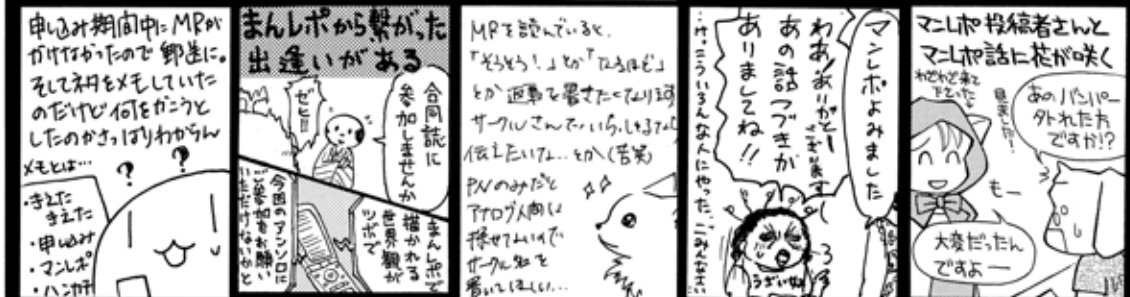 申し込み期間中にMRが
かけなかったので郵送に。
そしてネタをメモしていた
のだけど何をかこうと
したのかさっぱりわからん
メモとは…
?
?
・きえた
きえた
・申し込み
・マンレポ
・ハンカチ
まんレポから繋がった
出逢いがある
合同誌に
参加しませんか
ゼヒ!!
まんレポで
描かれる
世界観が
ツボで
今回のアンソロに
ご参加をお願い
いただけないかと
MRを読んでいると、
「そうそう!」とか「なるほど」
とか返事を書きたくなります
サークルさんでいらっしゃるなら
伝えたいな…とか(苦笑)
PNのみだと
アナログ人間は
探せないので
サークル名を
書いてほしい…
マンレポよみました
わあ!ありがとー
ございます
あの話つづきが
ありましてね!!
うざいね
マンレポ投稿者さんと
マンレポ話に花が咲く
わざわざ来て
下さった
見ました!
あのバンパー
外れた方
ですか!?
もー
大変だったん
ですよー